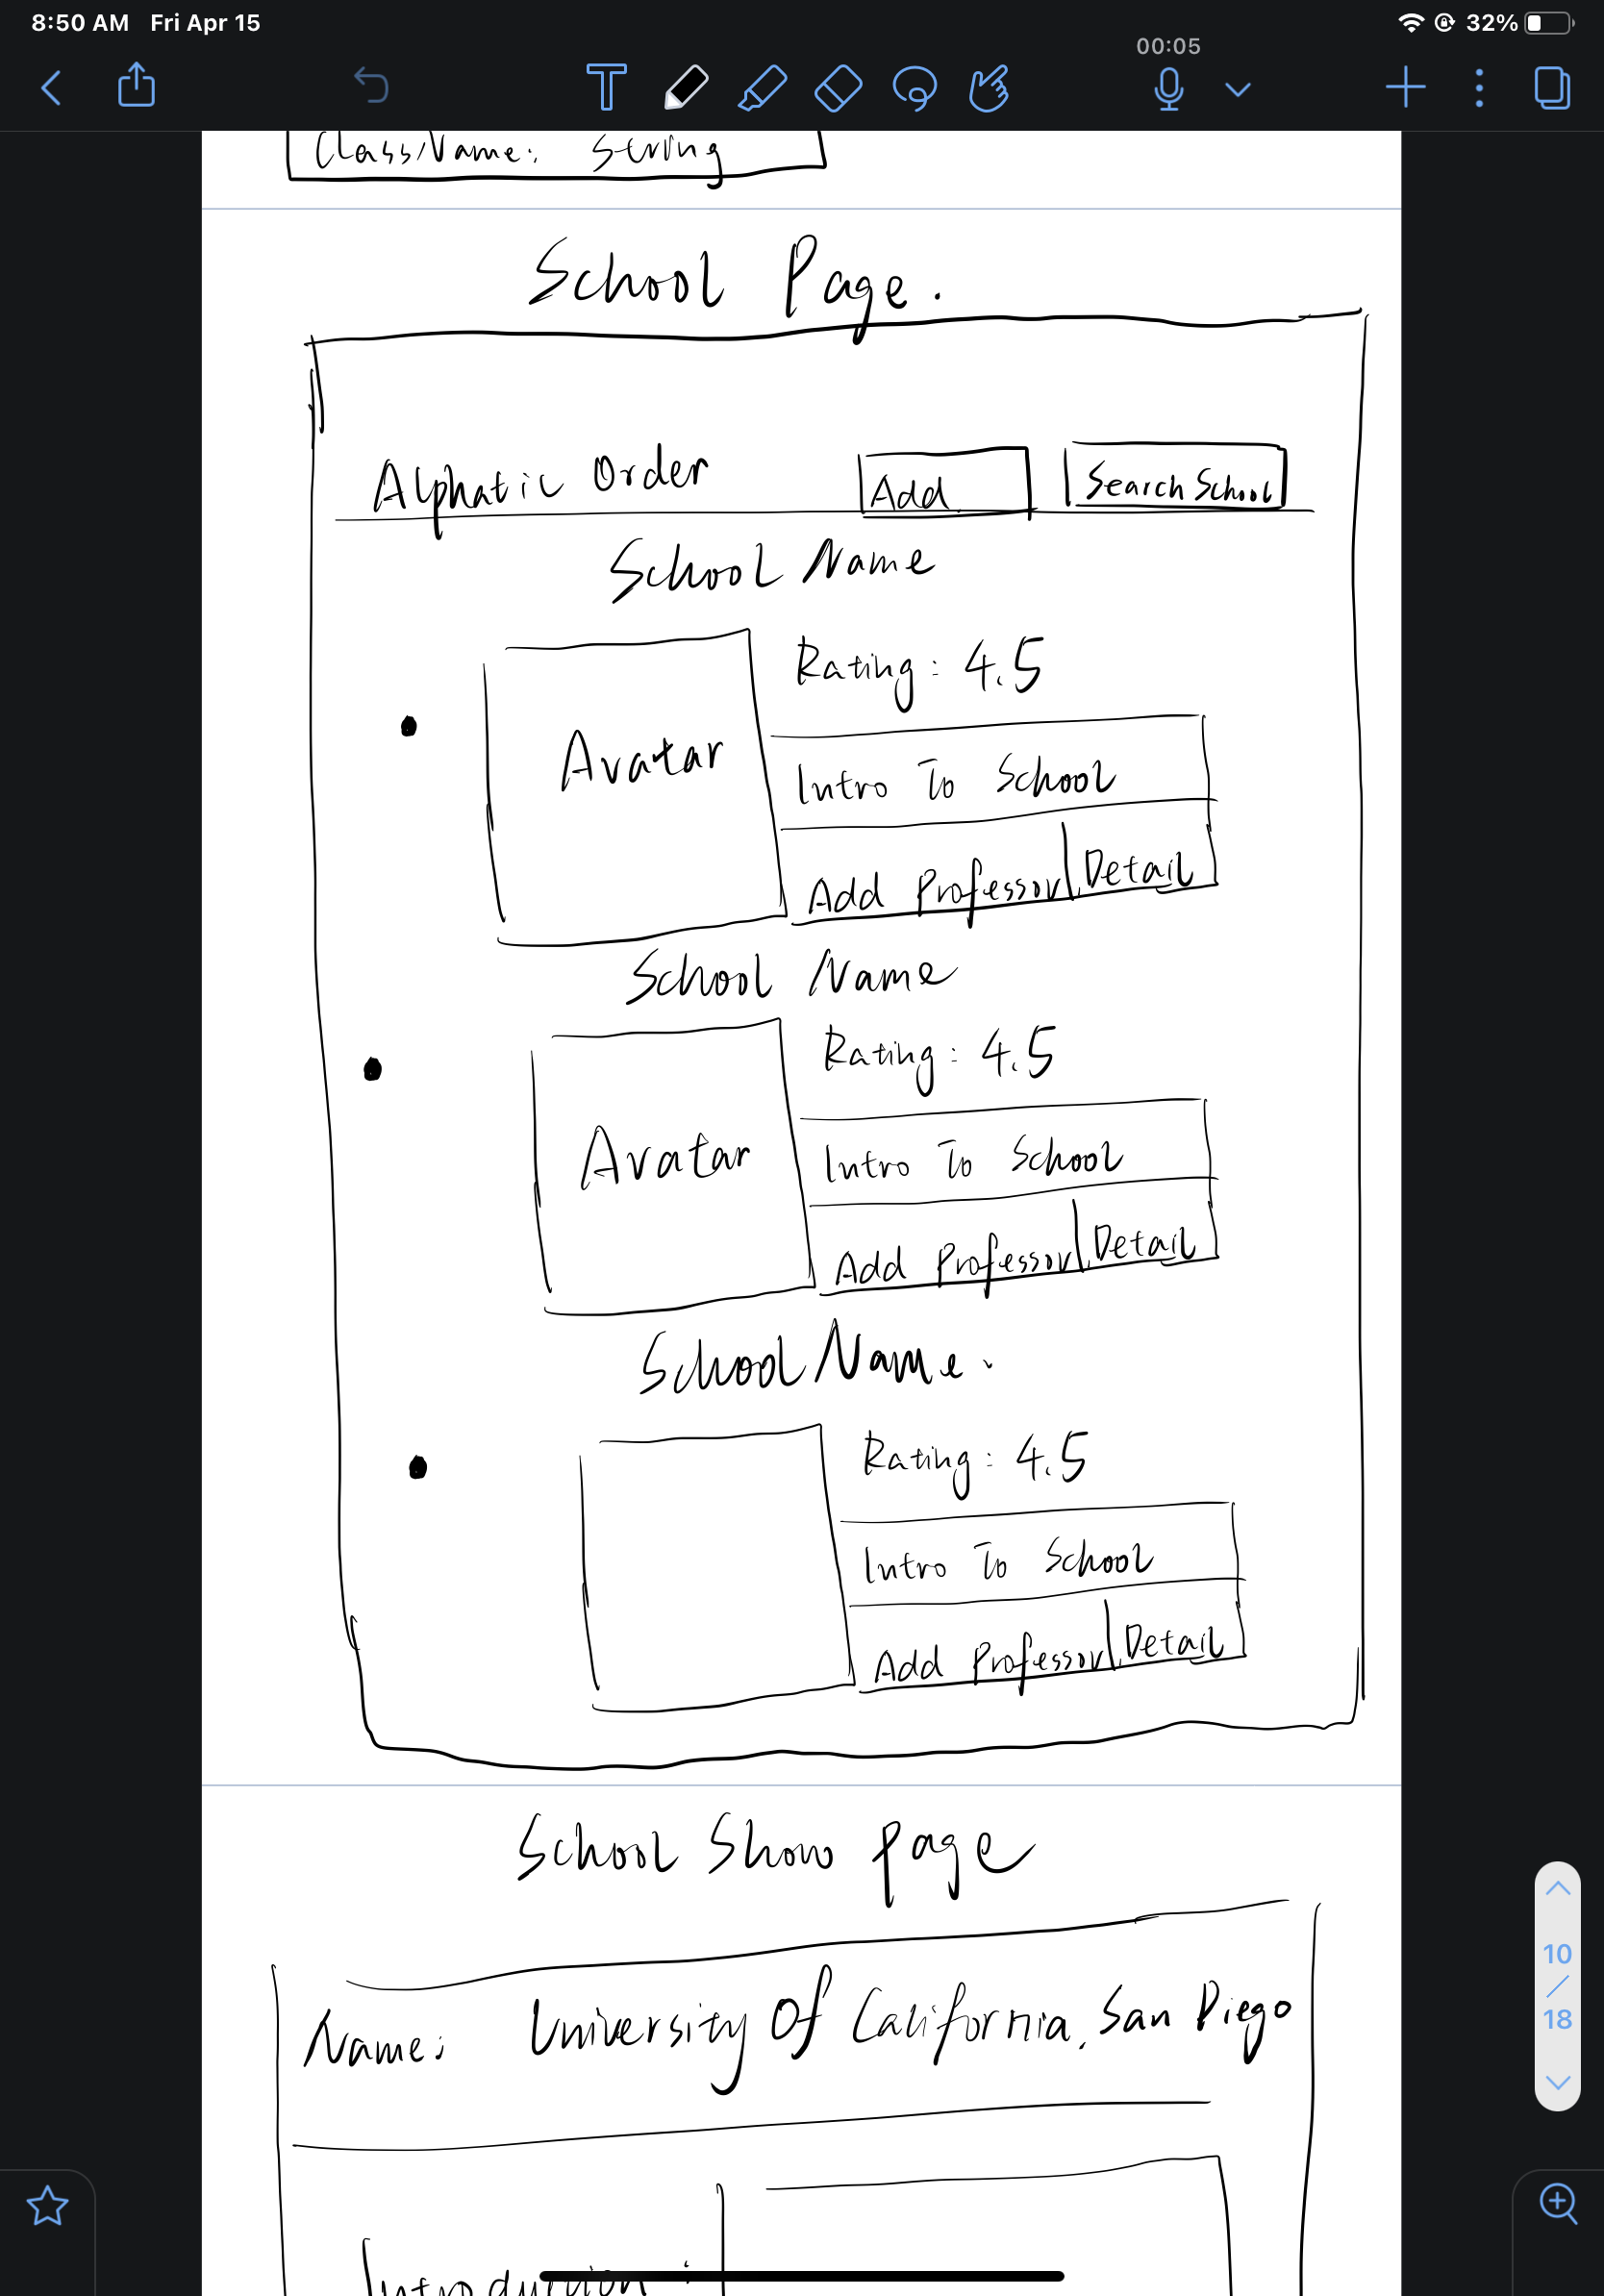 8:50 AM Fri Apr 15
32%
00:05
ClassName: String
School Page.
Alphatic Order Add Search School
School Name
Rating: 4.5
Avatar
Intro To School
Add Professor Detail
School Name
Rating: 4.5
Avatar
Intro To School
Add Professor Detail
School Name.
Rating: 4.5
Intro To School
Add Professor Detail
School Show page
Name: University Of California, San Diego
10
/
18
Introduction: